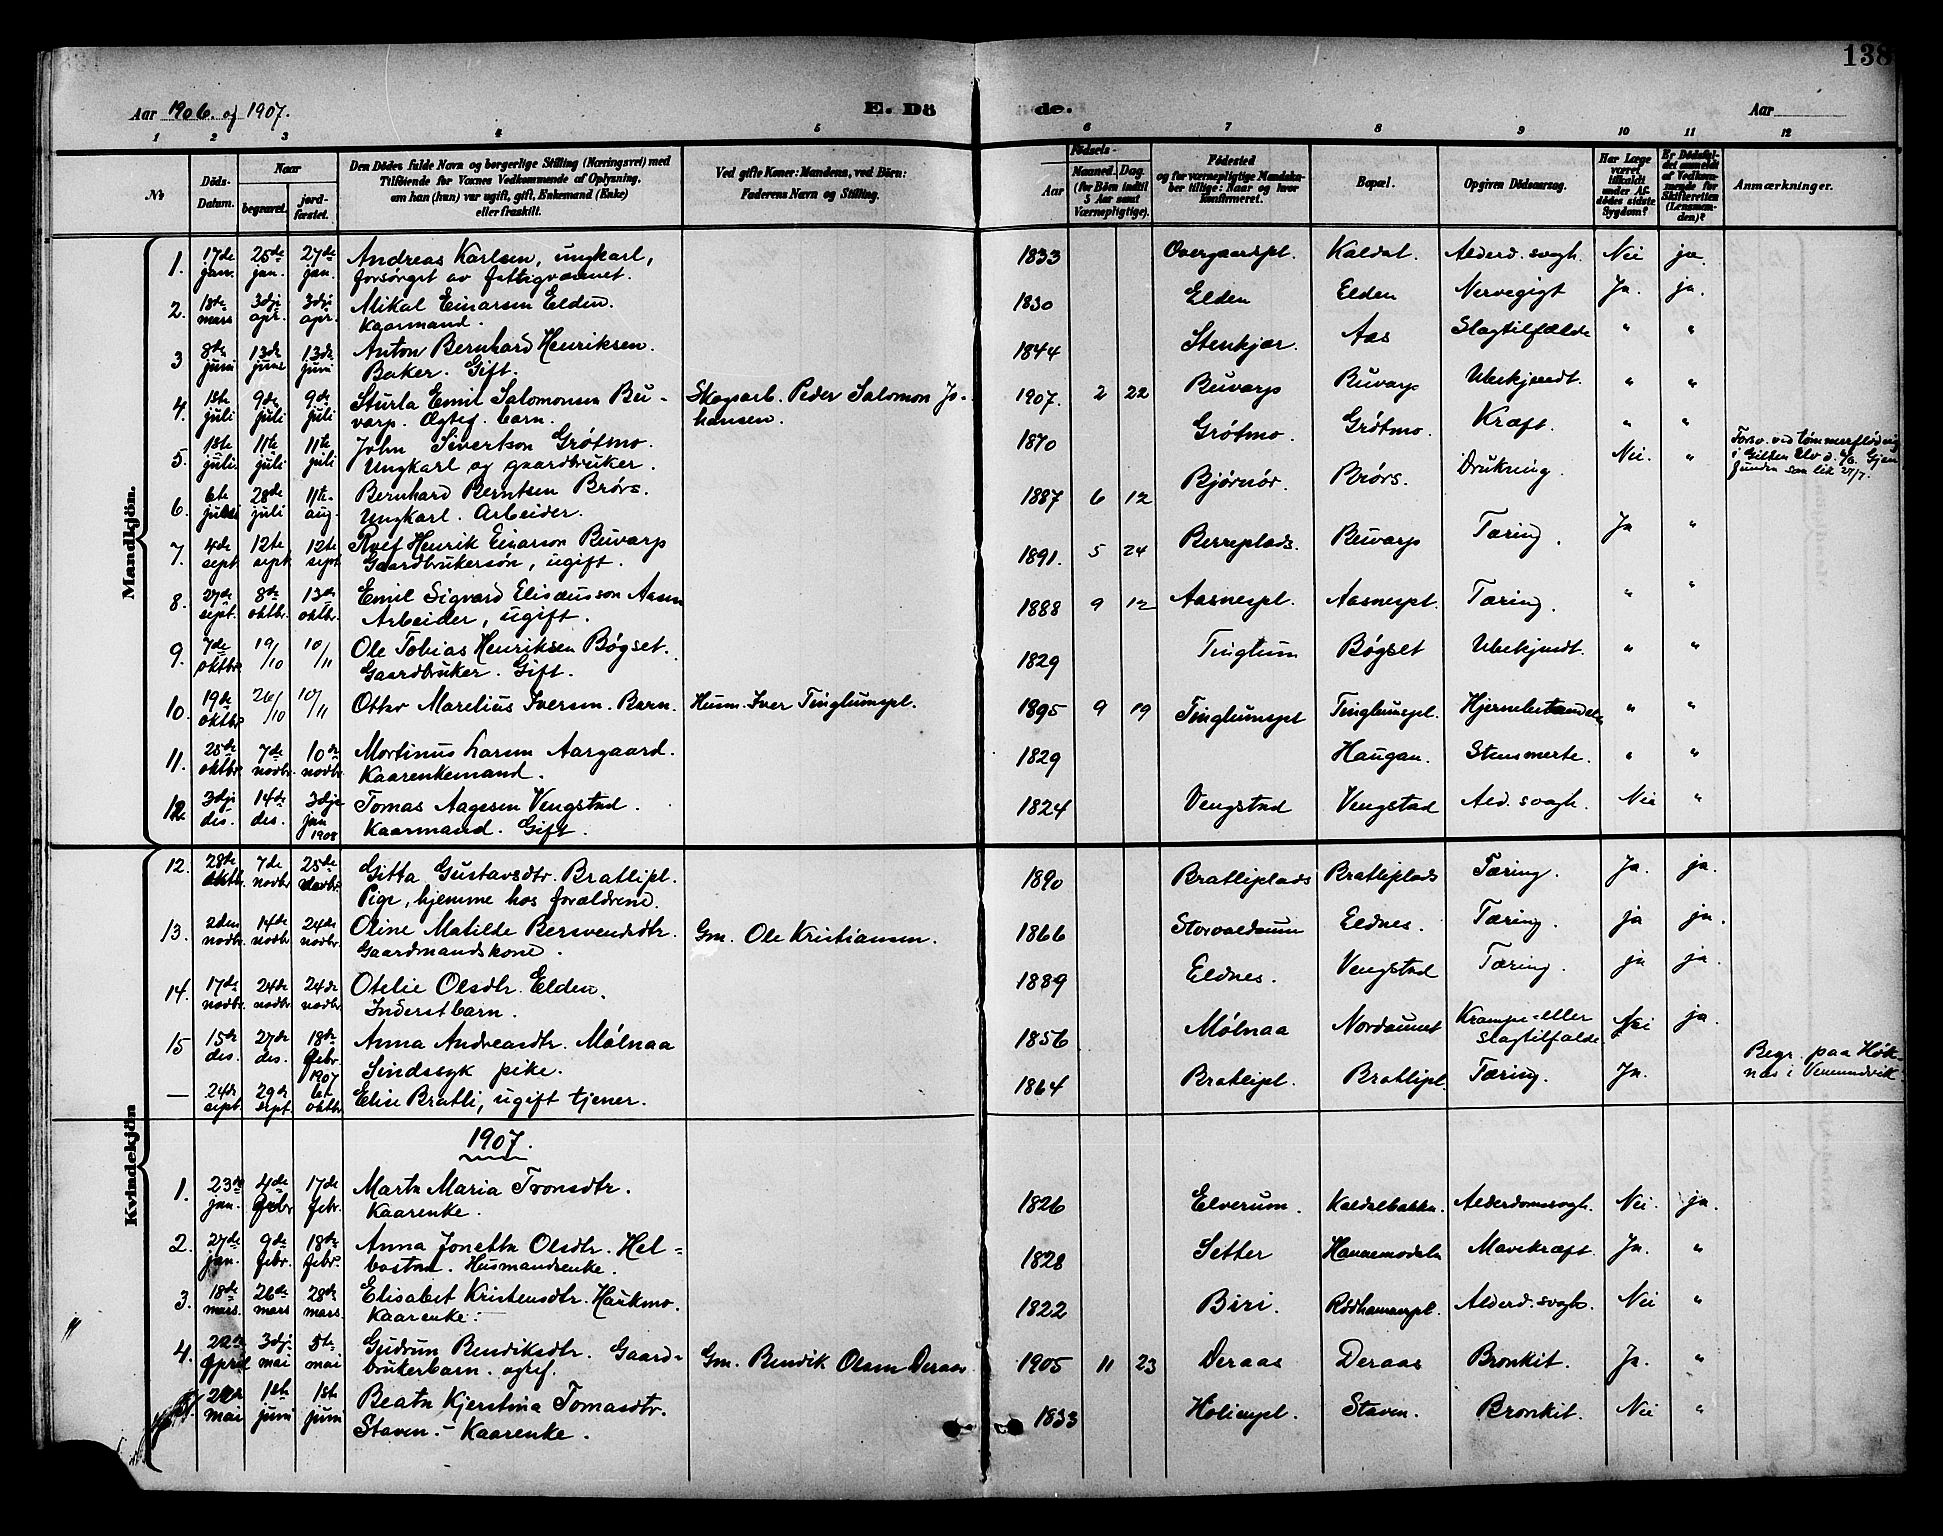 138
Aar 1906 og 1907.
E. Döde.
Aar
1 2 3 4 5 6 7 8 9 10 11 12
№
Döds-Datum.
Naar
begravet.
jordfæstet.
Den Dödes fulde Navn og borgerlige Stilling (Næringsvei) med
Tilföiende for Voxnes Vedkommende af Oplysning,
om han (hun) var ugift, gift, Enkemand (Enke)
eller fraskilt.
Ved gifte Koner: Mandens, ved Börn:
Faderens Navn og Stilling.
Födsels-
Aar
Maaned. Dag.
(for Börn indtil
5 Aar samt
Værnepligtige).
Födested
og for værnepligtige Mandskaber tillige: Naar og hvor konfirmeret.
Bopæl.
Opgiven Dödsaarsag.
Har Læge været tilkaldt under Afdödes sidste Sygdom?
Er Dödsfaldet anmeldt af Vedkommende for Skifteretten (Lensmanden)?
Anmærkninger.
Mandkjön.
1. 17de jan. 25de jan. 27de jan. Andreas Karlsen, ungkarl, forsørget av fattigvæsenet. 1833 Overgaardspl. Kaldal. Alderd. svagh. Nei ja.
2. 18de mars 3dje apr. 3dje apr. Mikal Einarsen Elden. Kaarmand. 1830 Elden Elden Nervegigt Ja. ja.
3 8de juni 13de juni 13de juni Anton Bernhard Henriksen. Baker. Gift. 1844 Stenkjær. Aas Slagtilfælde " "
4. 1ste juli 9de juli 9de juli Sturla Emil Salomonsen Buvarp. Ægtef. barn. Skogsarb. Peder Salomon Johansen. 1907. 2 22 Buvarp Buvarp Ubekjendt. " "
5. 1ste juli 11te juli 11te juli John Sivertson Grøtmo. Ungkarl og gaardbruker. 1870 Grøtmo. Grøtmo. Kræft. " "
6. 6te juli 28de juli 11te aug. Bernhard Berntsen Brørs. Ungkarl. Arbeider. 1887 6 12 Bjørnør Brørs. Drukning. Nei. " Forsv. ved tømmerflødning i Gilten Elv d. 6/6. Gjenfunden som lik 27/7.
7. 4de sept. 12te sept. 12te sept. Rolf Henrik Einarson Buvarp Gaardbrukersøn, ugift. 1891. 5 24 Berreplads. Buvarp Tæring. Ja "
8. 27de sept. 8de oktbr. 13de oktbr. Emil Sigvard Elisæusson Aasen Arbeider, ugift. 1888 9 12 Aasnespl. Aasnespl. Tæring. " "
9. 7de oktbr. 19/10 10/11 Ole Tobias Henriksen Bøgset. Gaardbruker. Gift. 1829 Tinglum Bøgset Ubekjendt. " "
10. 19de oktbr. 26/10 10/11 Otter Marelius Iversen. Barn. Husm. Iver Tinglumspl. 1895 9 19 Tinglumspl Tinglumspl. Hjernebetændelse " "
11. 25de oktbr. 7de novbr. 10de novbr. Mortinus Larsen Aargaard. Kaarenkemand. 1829 Haugan. Stensmerte. " "
12. 3dje des. 14de des. 3dje jan 1908 Tomas Aagesen Vengstad. Kaarmand. Gift. 1824 Vengstad Vengstad Ald. svagh. Nei "
Kvindekjön
12. 28de oktbr. 7de novbr 25de novbr. Gitta Gustavsdtr. Bratlipl. Pige, hjemme hos forældrene. 1890 Bratliplads Bratliplads Tæring. Ja. ja.
13. 2den novbr. 14de novbr. 24de novbr. Oline Matilde Bersvendsdtr. Gaardmandskone. Gm. Ole Kristiansen. 1866 Storvaldaunn Eldnes. Tæring. ja ja.
14. 17de novbr. 24de novbr. 24de novbr. Otelie Olsdtr. Elden. Inderstbarn. 1889 Eldnes. Vengstad Tæring. ja ja.
15 15de des. 27de des. 18de febr. 1907 Anna Andreasdtr. Mølnaa Sindssyk pike. 1856 Mølnaa Nordaunet Krampe- eller slagtilfælde Nei ja.
— 24de sept. 29de sept. 6te oktbr Elise Bratli, ugift tjener. 1864 Bratlipl. Bratlipl. Tæring. Ja. Begr. paa Høknes i Vemundvik
1907.
1. 23de jan. 4de febr 17de febr. Marta Maria Tronsdtr. Kaarenke. 1826 Elverum. Kaldalbakka. Alderdomssvagh. Nei. ja.
2. 27de jan. 9de febr. 18de febr. Anna Jonetta Olsdtr. Helbostad. Husmandsenke. 1828 Setter Hannemodeln Mavekræft. Ja. "
3. 18de mars. 26de mars 28de mars. Elisabet Kristensdtr. Haukmo. Kaarenke. 1822 Biri. Rødhammerpl. Alderd. svagh. Nei "
4. 22de April 3dje mai 5te mai Gudrun Bendiksdtr. Gaardbrukerbarn. ægtef. Gm. Bendik Olsen Deraas 1905 11 23 Deraas Deraas Bronkit. Ja. "
5. 22de mai 1ste juni 1ste juni Beata Kjerstina Tomasdtr. Staven. - Kaarenke. 1833 Holienpl. Staven. Bronkit. Nei "